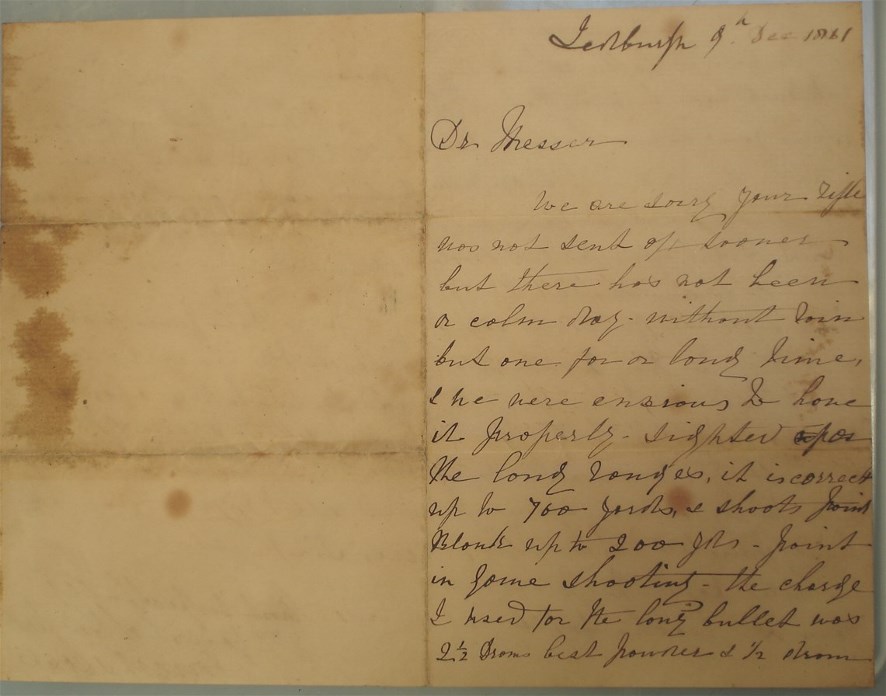 Jedburgh 9th Dec 1861
Dr Messer
We are sorry your rifle
was not sent of sooner
but there has not been
a calm day - without rain
but one for a long time,
& we were anxious to have
it properly - sighted for
the long ranges, it is correct
up to 700 yards, & shoots point
blank up to 200 yds - point
in game shooting - the charge
I used for the long bullet was
2½ Drams best powder & ½ dram